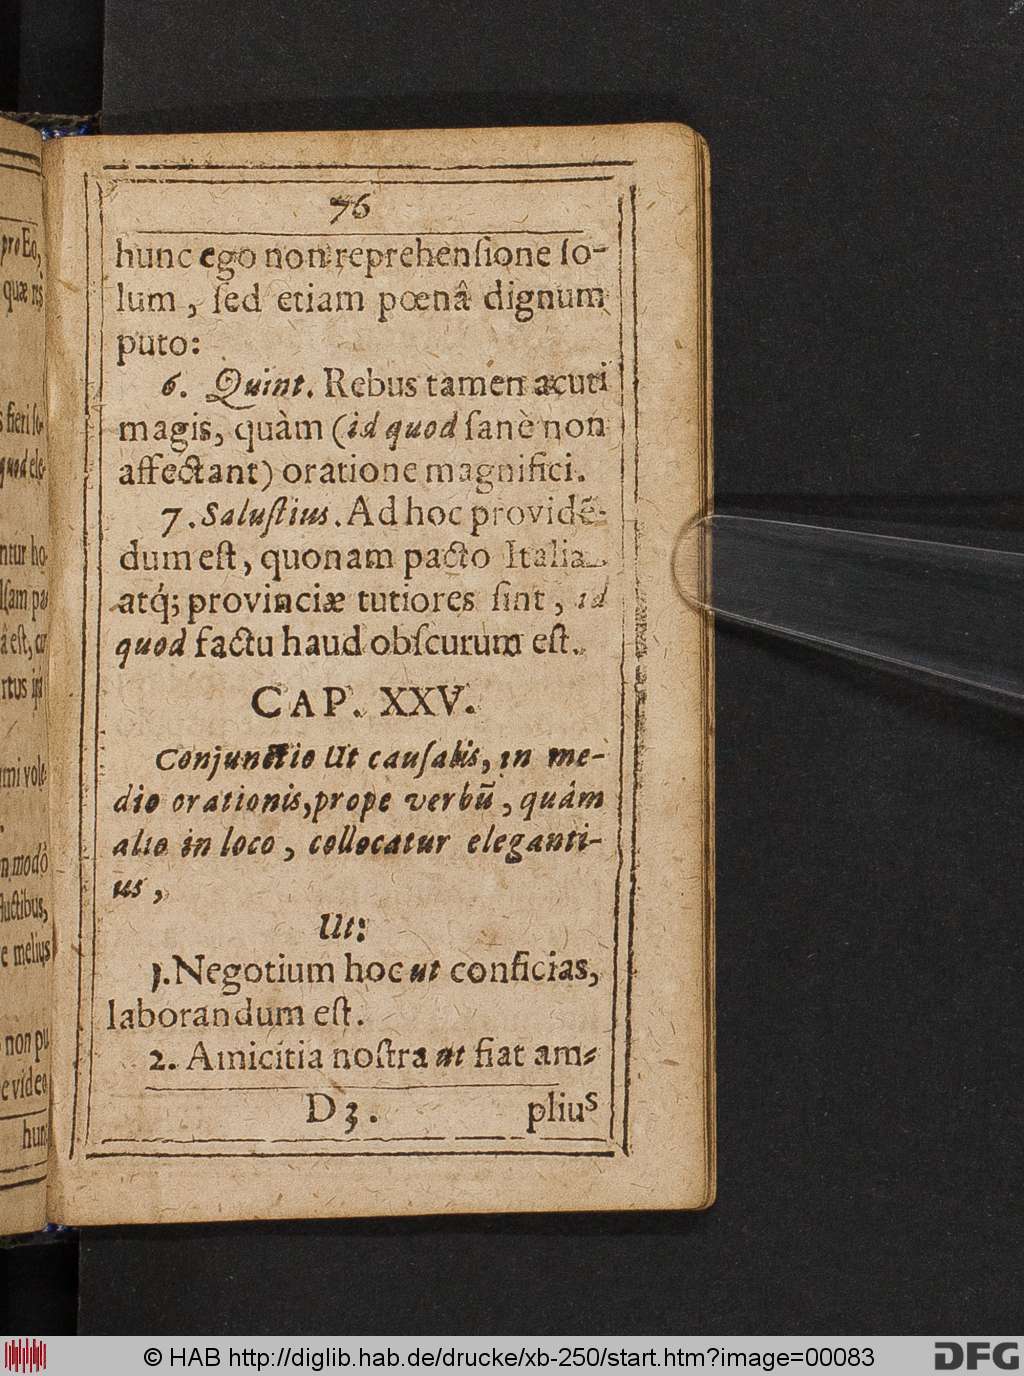 76
hunc ego non reprehenſione ſo-
lum, ſed etiam pœnâ dignum
puto:
6. Quint. Rebus tamen acuti
magis, quàm (id quod ſanè non
affectant) oratione magnifici.
7. Saluſtius. Ad hoc providē-
dum eſt, quonam pacto Italia
atq́; provinciæ tutiores ſint, id
quod factu haud obſcurum eſt.
CAP. XXV.
Conjunctio Ut cauſalis, in me-
dio orationis, prope verbū, quâm
alio in loco, collocatur eleganti-
us,
Ut:
1. Negotium hoc ut conficias,
laborandum eſt.
2. Amicitia noſtra ut fiat am-
D 3.
plius
pro Eo,
quæ
fieri ſo-
quod ele-
ntur ho
rtus
imi vole
modò
luctibus,
e melius
non pu
e video
hunc
© HAB http://diglib.hab.de/drucke/xb-250/start.htm?image=00083
DFG